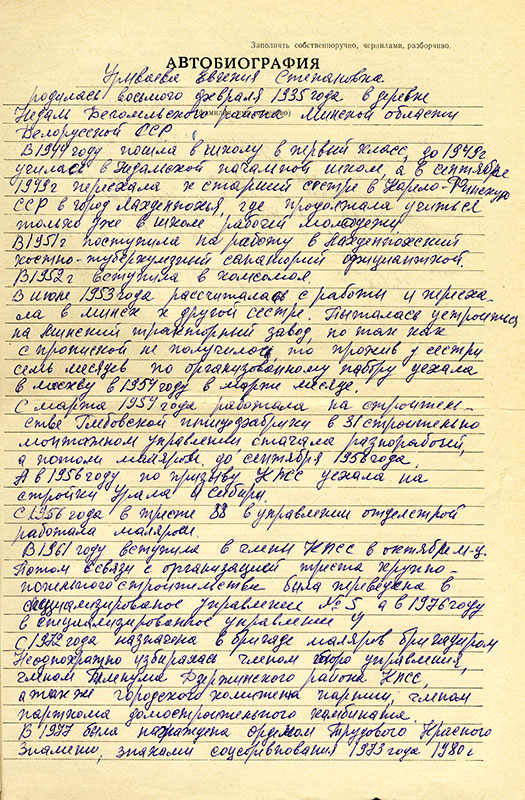 Заполнять собственноручно, чернилами, разборчиво.
АВТОБИОГРАФИЯ
Евгения Степановна
родилась восьмого февраля 1935 года в деревне
Недам Бегомльского района Минской области
Белорусской ССР
В 1944 году пошла в школу в первый класс, до 1949 г
училась в Недамской начальной школе, а в сентябре
1949 г переехала к старшей сестре в Карело-Финскую
ССР в город Лахденпохья, где продолжала учиться
только уже в школе рабочей молодежи.
В 1951 г поступила на работу в Лахденпохский
костно-туберкулезный санаторий официанткой.
В 1952 г вступила в комсомол.
В июне 1953 года рассчиталась с работы и перееха-
ла в Минск к другой сестре. Пыталась устроиться
на Минский тракторный завод, но так как
с пропиской не получилось, то прожив у сестры
семь месяцев по организованному набору уехала
в Москву в 1954 году в марте месяце.
С марта 1954 года работала на строитель-
стве Глебовской птицефабрики в 31 строительно
монтажном управлении сначала разнорабочей,
а потом маляром до сентября 1956 года.
А в 1956 году по призыву КПСС уехала на
стройки Урала и Сибири.
С 1956 года в тресте 38 в управлении отделстрой
работала маляром.
В 1961 году вступила в члены КПСС в октябре м-ц.
Потом в связи с организацией треста крупно-
понельного строительства была переведена в
специализированое управление № 5, а в 1976 году
в специализированое управление 4
С 1972 года назначена в бригаде маляров бригадиром
Неоднократно избиралась членом бюро управления,
членом Пленума Дзержинского района КПСС,
а также городского комитета партии, членом
парткома домостроительного комбината.
В 1977 была награждена орденом Трудового Красного
Знамени, знаками соцсоревнования 1973 года 1980 г